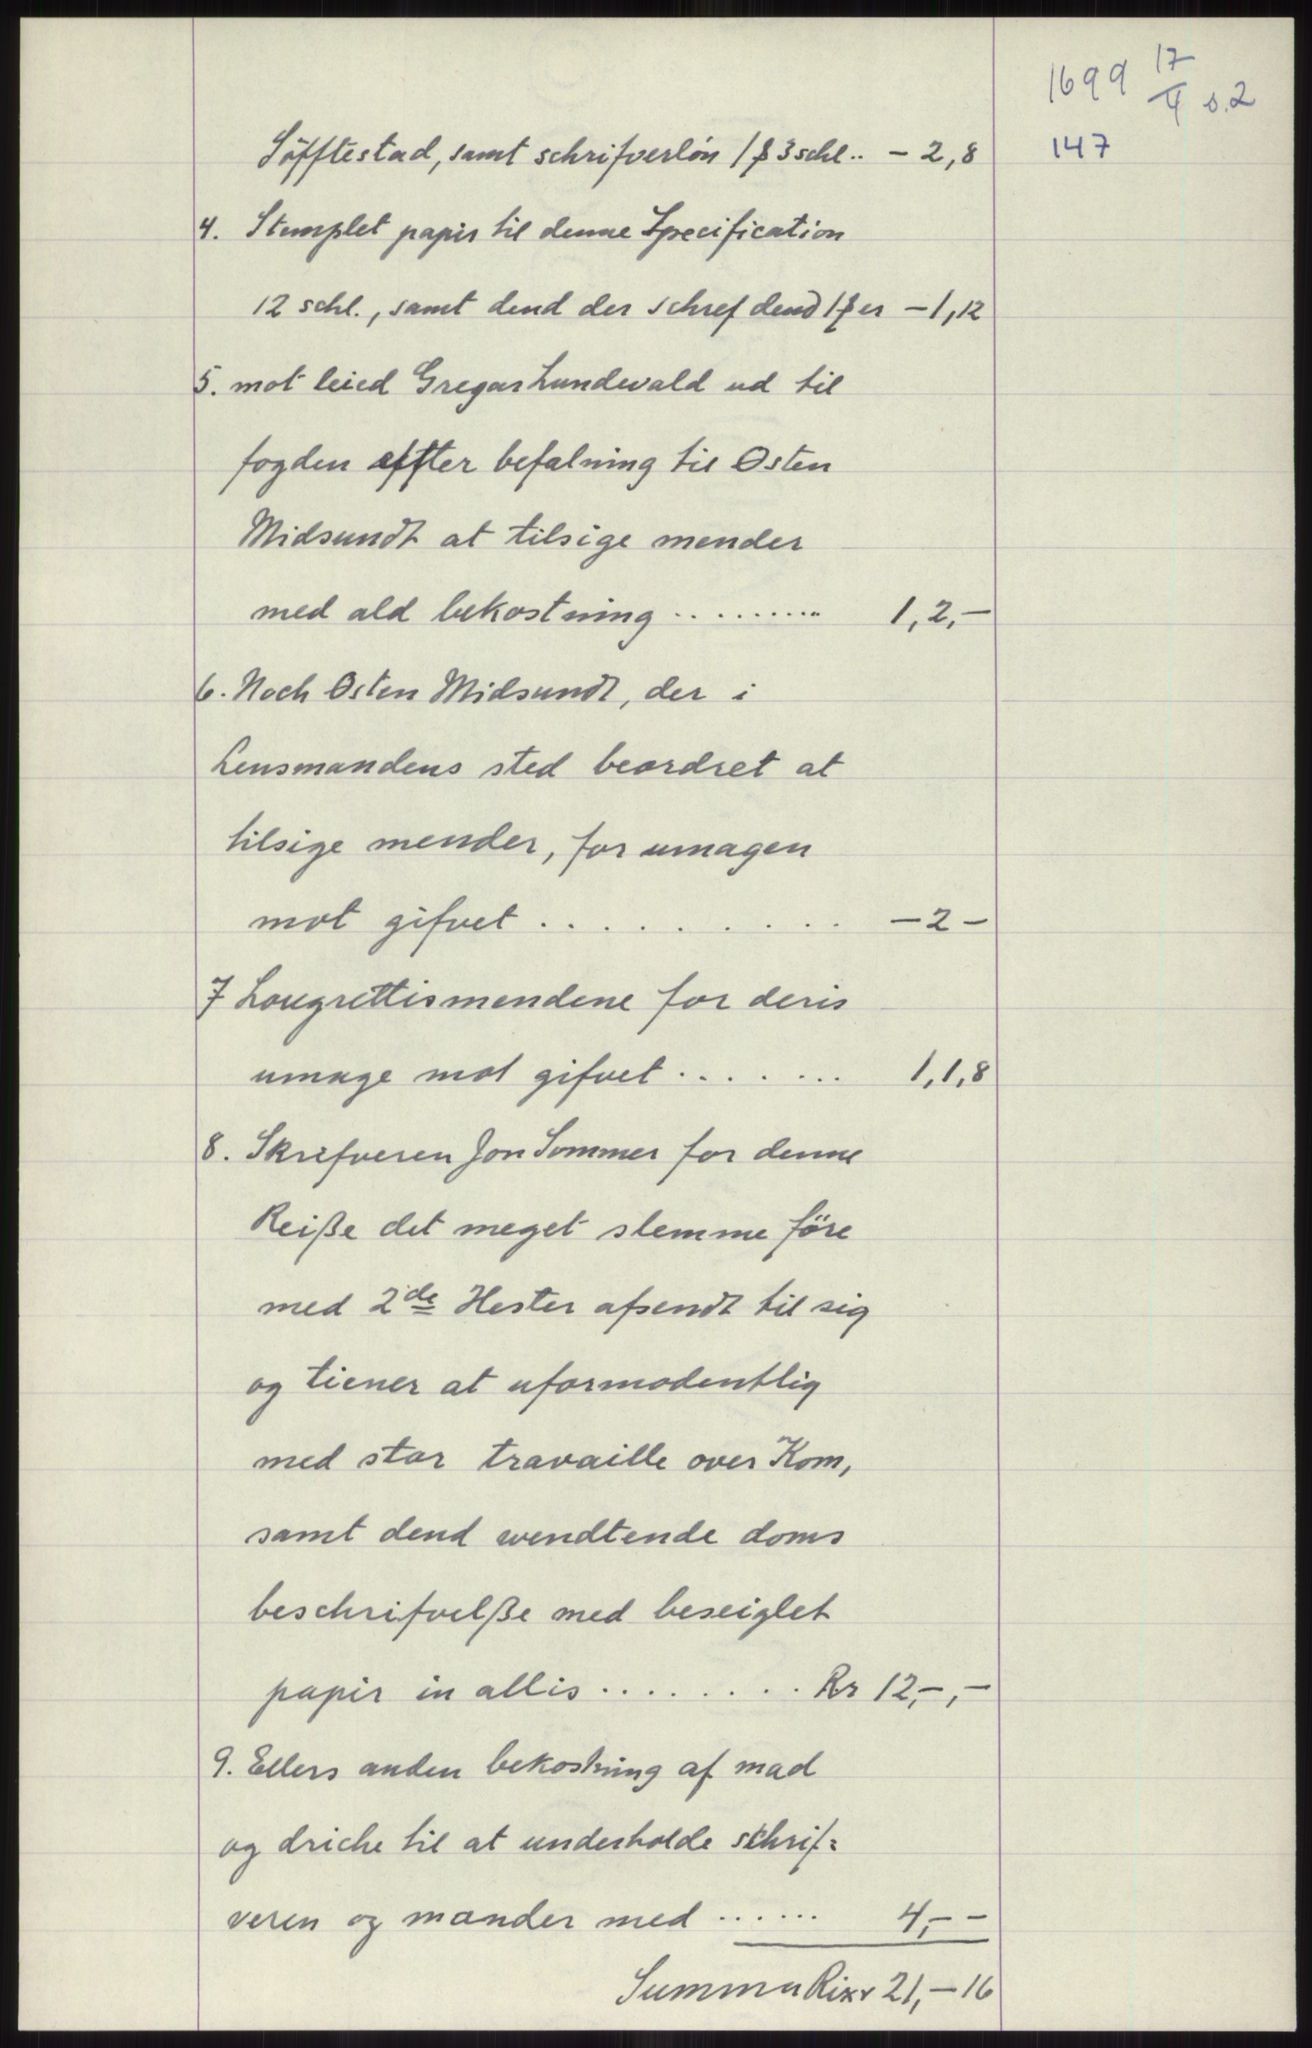 1699 17/4 s.2
147
Söfftestad, samt schrifverlön 1 ƒ 3 schl.. – 2,8
4. Stemplet papir til denne Specification
12 schl., samt dend der schref dend 1 ƒ er – 1,12
5. mot leied Gregar Lundevald ud til
fogden effter befalning til Osten
Midsundt at tilsige mender
med ald bekostning ......... 1,2,–
6. Noch Osten Midsundt, der i
Lensmandens sted beordret at
tilsige mender, for umagen
mot gifvet .......... – 2 –
7 Lougrettismendene for deris
umage mot gifvet ....... 1,1,8
8. Skrifveren Jon Sommer for denne
Reiße det meget slemme före
med 2de Hester afsendt til sig
og tiener at uformodentlig
med stor travaille over Kom,
samt dend wendtende doms
beschrifvelße med beseiglet
papir in allis ........ Rr 12,–,–
9. Ellers anden bekostning af mad
og driche til at underholde schrif=
veren og mander med ...... 4,– –
Summa Rixr 21,– 16